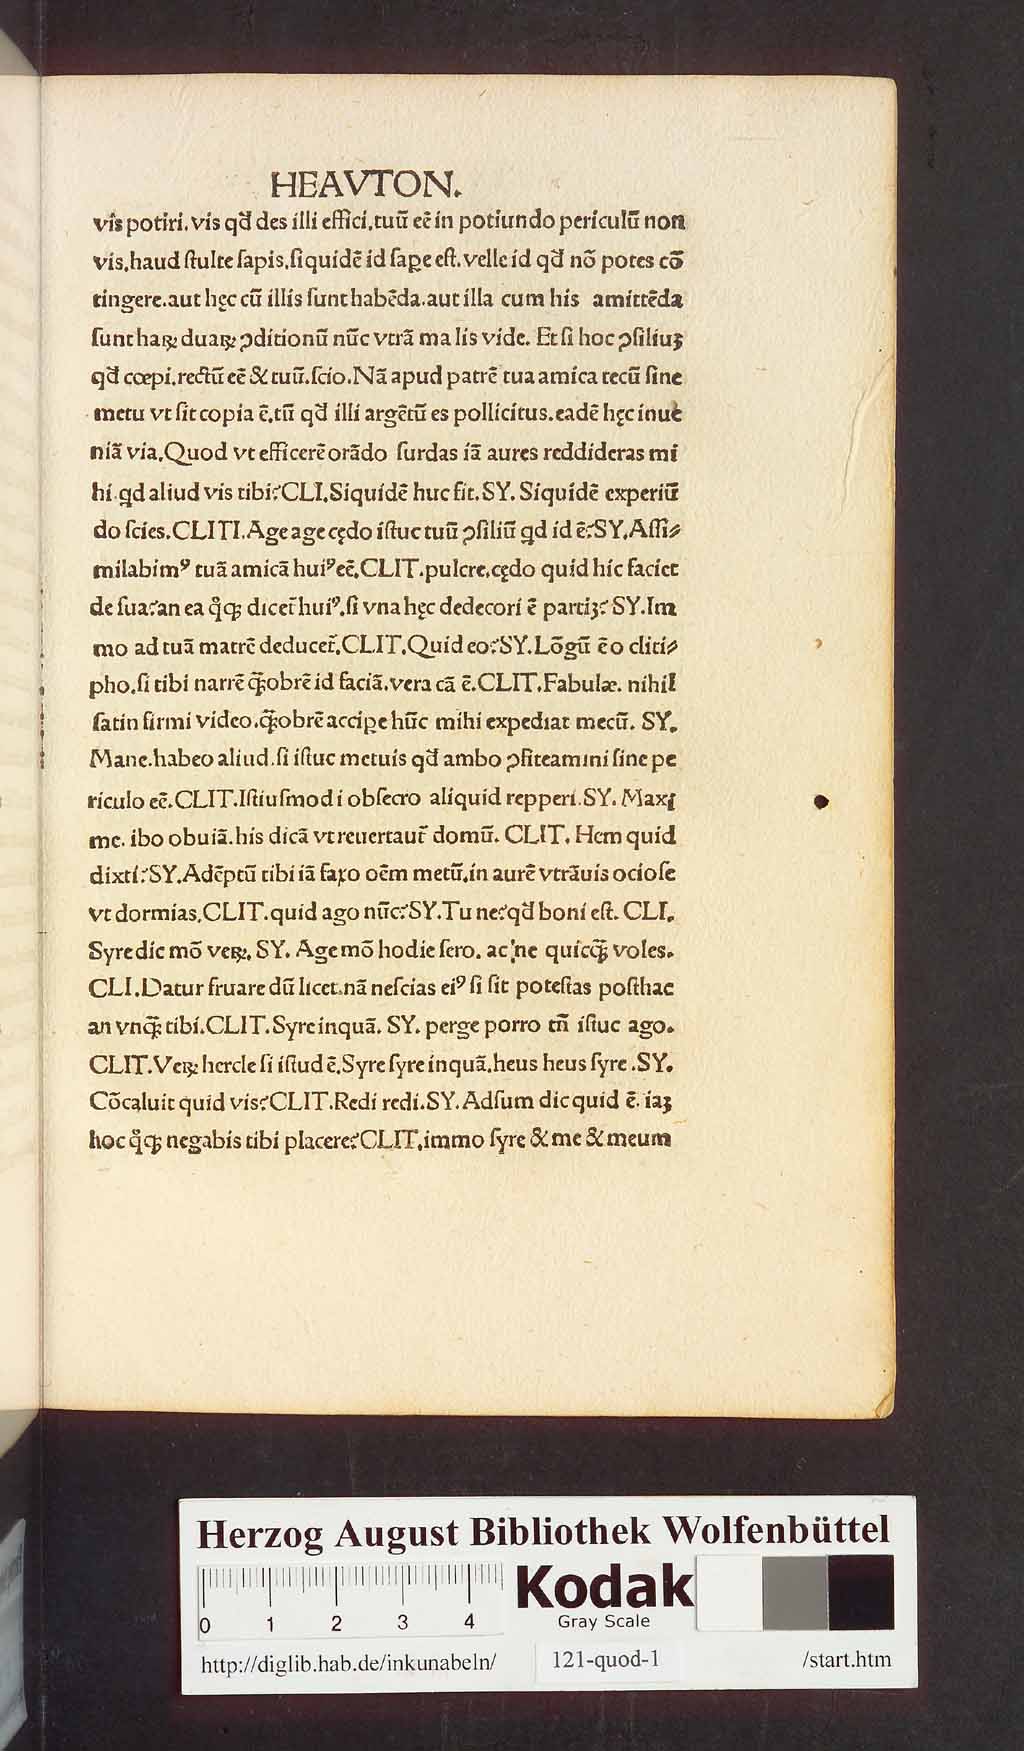 HEAVTON.
vis potiri. vis qđ des illi effici. tuū eē in potiundo periculū non
vis. haud ſtulte ſapis. ſiquidē id ſape eſt. velle id qđ nō potes cō
tingere. aut hęc cū illis ſunt habēda. aut illa cum his amittēda
ſunt haꝝ duaꝝ ꝯditionū nūc vtrā ma lis vide. Et ſi hoc ꝯſiliuꝫ
qđ cœpi. rectū eē & tuū. ſcio. Nā apud patrē tua amica tecū ſine
metu vt ſit copia ē. tū qđ illi argētū es pollicitus. eadē hęc inue
niā via. Quod vt efficerē orādo ſurdas iā aures reddideras mi
hi. qd aliud vis tibi? CLI. Siquidē huc fit. SY. Siquidē experiū
do ſcies. CLITI. Age age cędo iſtuc tuū ꝯſiliū qd id ē? SY. Aſſi⸗
milabimꝰ tuā amicā huiꝰ eē. CLIT. pulcre. cędo quid hic faciet
de ſua? an ea qͦꝗ dicet̃ huiꝰ. ſi vna hęc dedecori ē partiꝫ? SY. Im
mo ad tuā matrē deducet̃. CLIT. Quid eo? SY. Lōgū ē o cliti⸗
pho. ſi tibi narrē ꝗ̃obrē id faciā. vera cā ē. CLIT. Fabulæ. nihil
ſatin firmi video. ꝗ̃obrē accipe hūc mihi expediat mecū. SY.
Mane. habeo aliud. ſi iſtuc metuis qđ ambo ꝯfiteamini ſine pe
riculo eē. CLIT. Iſtiuſmodi obſecro aliquid repperi. SY. Maxi
me. ibo obuiā. his dicā vt reuertaut̃ domū. CLIT. Hem quid
dixti? SY. Adēptū tibi iā faxo oēm metū. in aurē vtrāuis ocioſe
vt dormias. CLIT. quid ago nūc? SY. Tu ne? qđ boni eſt. CLI.
Syre dic mō veꝝ. SY. Age mō hodie ſero. ac ne quicꝗ̃ voles.
CLI. Datur fruare dū licet. nā neſcias eiꝰ ſi ſit poteſtas poſthac
an vnꝗ̃ tibi. CLIT. Syre inquā. SY. perge porro tn̄ iſtuc ago.
CLIT. Veꝝ hercle ſi iſtud ē. Syre ſyre inquā. heus heus ſyre. SY.
Cōcaluit quid vis? CLIT. Redi redi. SY. Adſum dic quid ē. iaꝫ
hoc qͦꝗ negabis tibi placere? CLIT. immo ſyre & me & meum
Herzog August Bibliothek Wolfenbüttel
0 1 2 3 4
Kodak
Gray Scale
http://diglib.hab.de/inkunabeln/ 121-quod-1 /start.htm